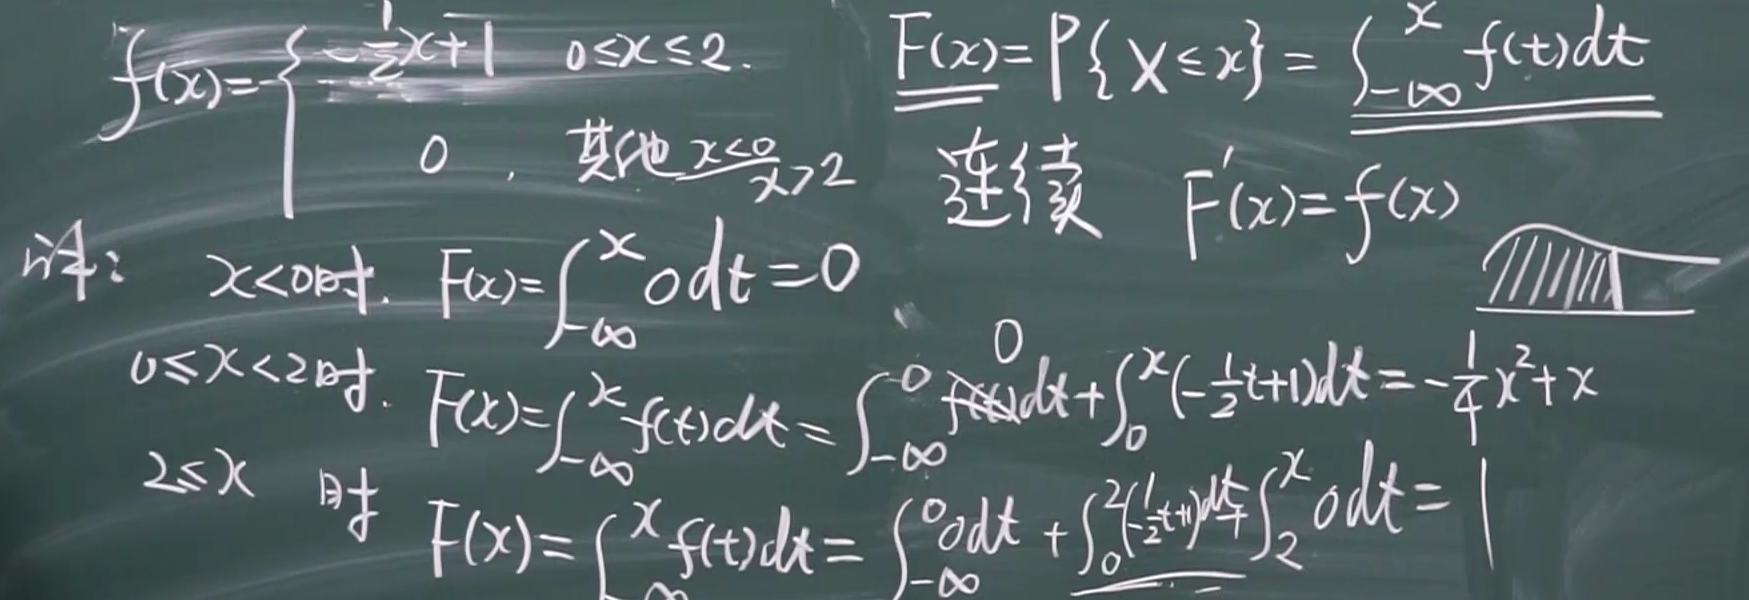 f(x)={ -1/2x+1 0≤x≤2.
0 , 其他 x<0 x>2
F(x)=P{X≤x}=∫_{-∞}^{x} f(t)dt
连续 F'(x)=f(x)
x<0时. F(x)=∫_{-∞}^{x} 0dt=0
0≤x<2时. F(x)=∫_{-∞}^{x} f(t)dt=∫_{-∞}^{0} 0 dt+∫_{0}^{x}(-1/2t+1)dt=-1/4x²+x
2≤x 时 F(x)=∫_{-∞}^{x} f(t)dt=∫_{-∞}^{0} 0dt+∫_{0}^{2}(-1/2t+1)dt+∫_{2}^{x} 0dt=1